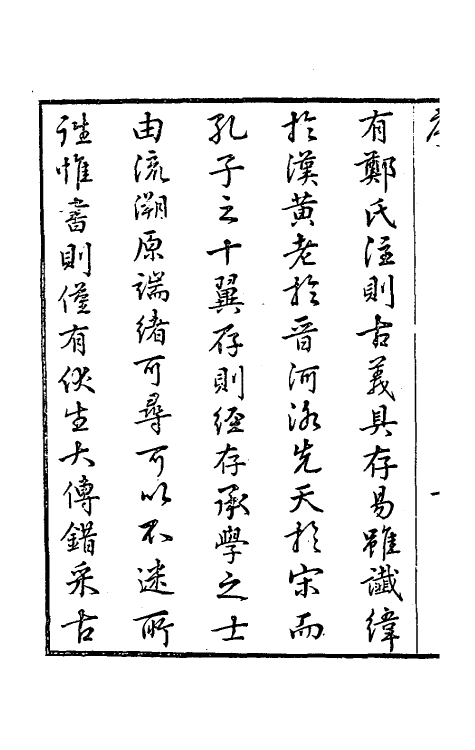 有鄭氏注則古義具存易雖讖緯
於漢黄老於晋河洛先天於宋而
孔子之十翼存則經存承學之士
由流溯原端緒可尋可以不迷所
往惟書則僅有伏生大傳錯采古